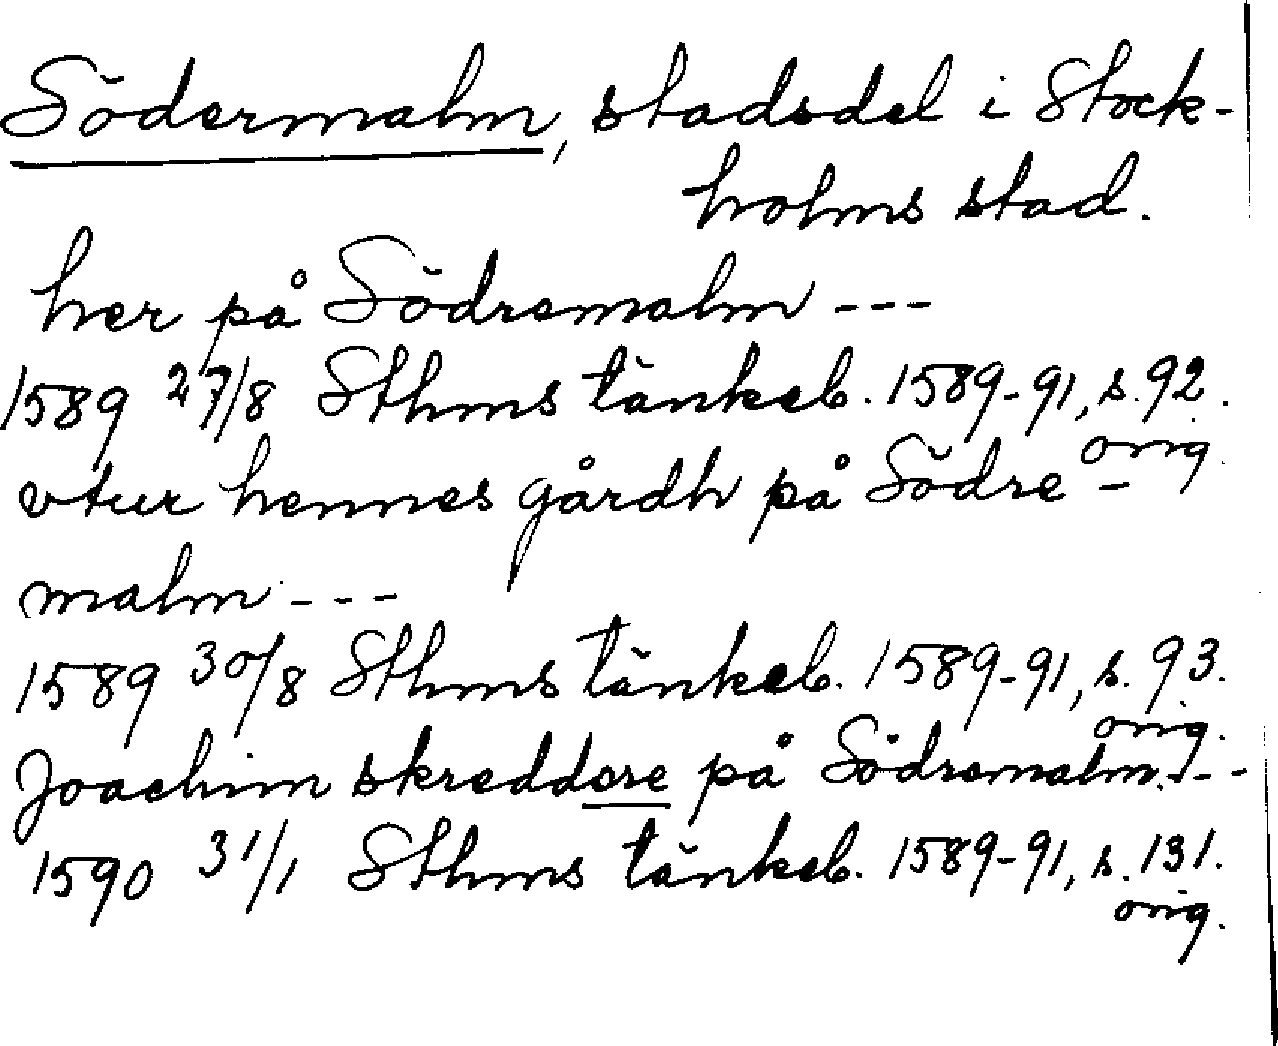 Södermalm, stadsdel i Stock-
holms stad.
her på Södremalm ---
1589 27/8 Sthms tänkeb. 1589-91, s. 92.
orig.
vtur hennes gårdh på Södre-
malm ---
1589 30/8 Sthms tänkeb. 1589-91, s. 93.
orig.
Joachim skreddere på Södremalm.---
1590 31/1 Sthms tänkeb. 1589-91, s. 131.
orig.